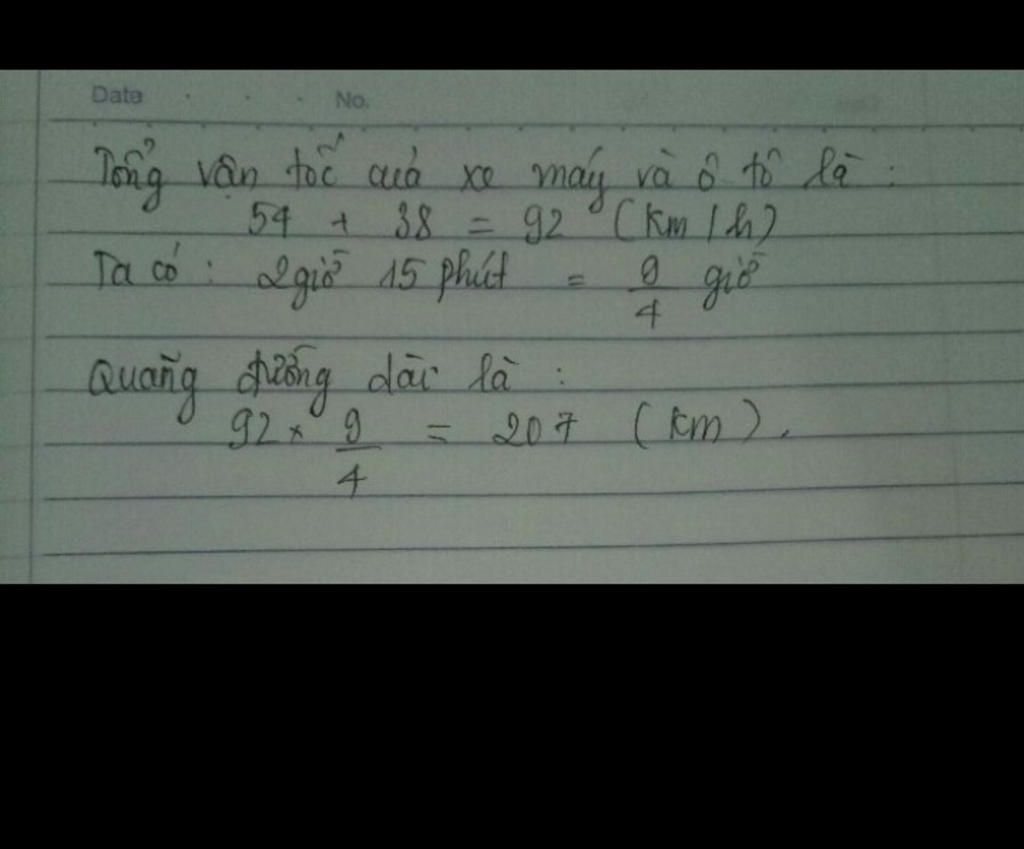 Date No.
Tổng vận tốc quả xe máy và ô tô là :
54 + 38 = 92 (km/h)
Ta có : 2 giờ 15 phút = 9/4 giờ
Quãng đường dài là :
92 × 9/4 = 207 (km).